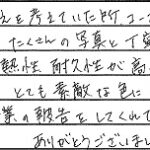 えを考えていた所コー
たくさんの写真と丁寧
熱性耐久性が高
とても素敵な色に
業の報告をしてくれて
ありがとうございまし